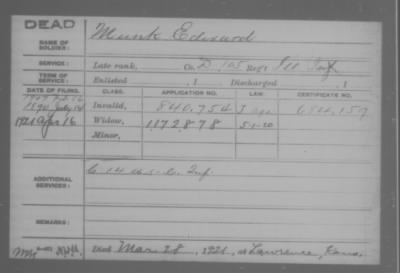 DEAD
NAME OF SOLDIER: Munk Edward
SERVICE: Late rank, Co. D, 105 Reg't Ill Inf
TERM OF SERVICE: Enlisted , 1 Discharged , 1
DATE OF FILING. CLASS. APPLICATION NO. LAW. CERTIFICATE NO.
1890 July 14 Invalid, 840,754 684,159
1921 Apr 16 Widow, 1172878 5-1-20
Minor,
ADDITIONAL SERVICES: C 14 U.S.C. Inf.
REMARKS:
Died Mar. 28, 1921, at Lawrence, Kans.